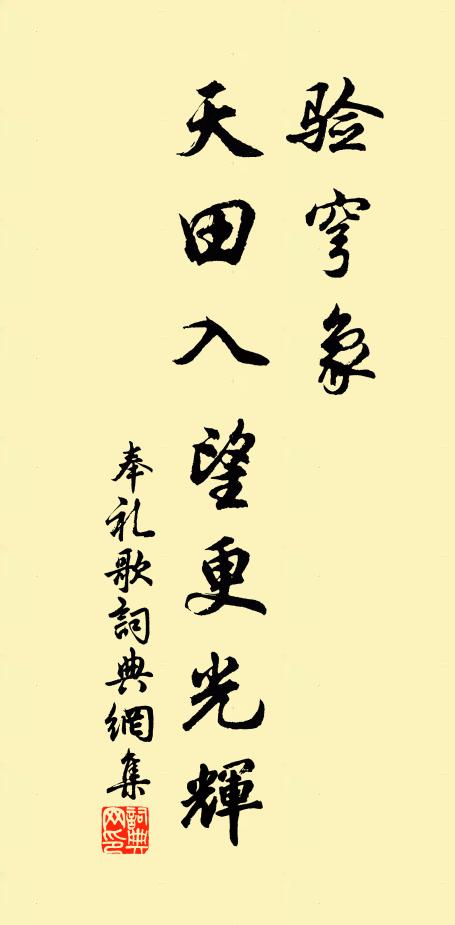 验穹象
天田入望更光輝
奉礼歌詞典網集
詞典网印